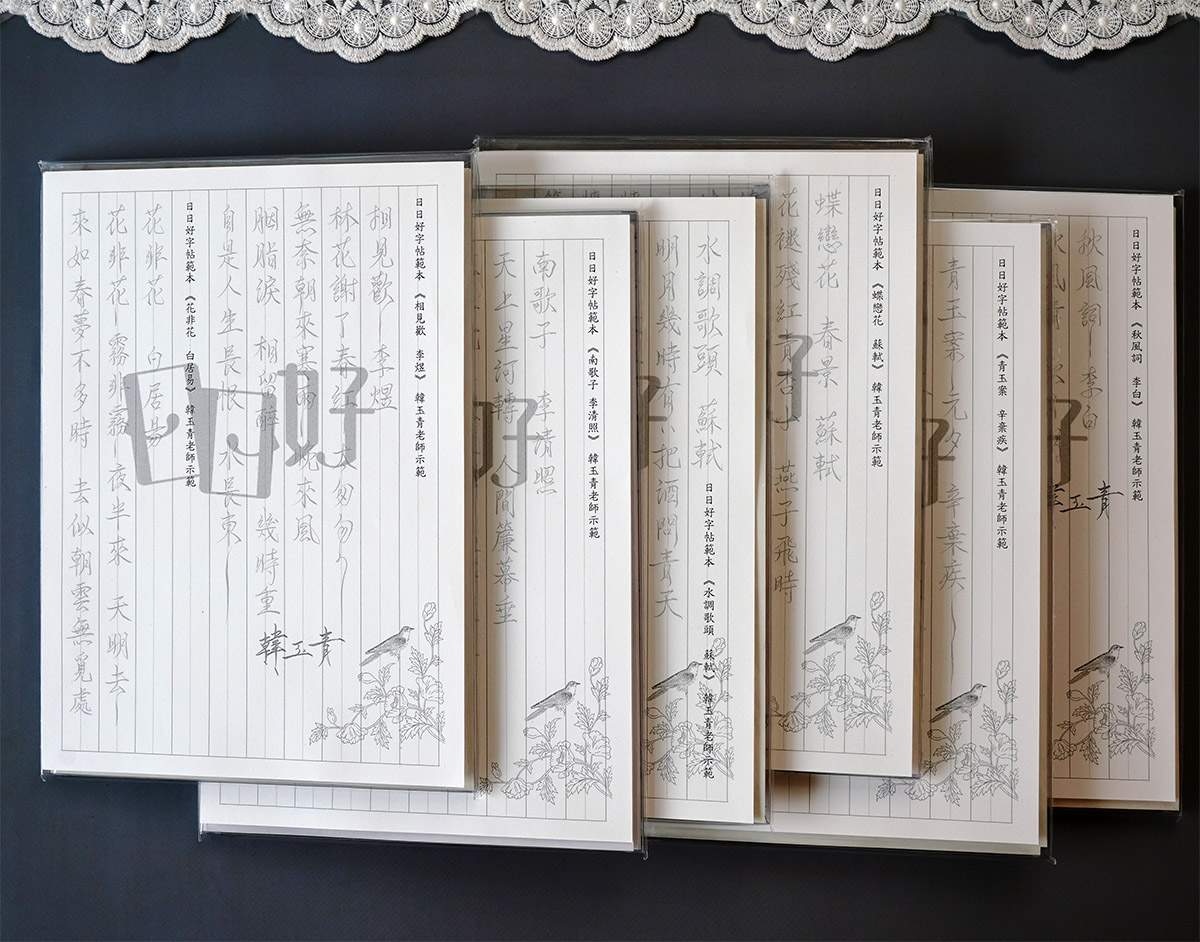 日日好字帖範本 《相見歡 李煜》 韓玉青老師示範
相見歡 李煜
林花謝了春紅 太匆匆
無奈朝來寒雨 晚來風
胭脂淚 相留醉 幾時重
自是人生長恨 水長東
韓玉青
日日好字帖範本 《花非花 白居易》 韓玉青老師示範
花非花 白居易
花非花 霧非霧 夜半來 天明去
來如春夢不多時 去似朝雲無覓處
日日好
日日好字帖範本 《南歌子 李清照》 韓玉青老師示範
南歌子 李清照
天上星河轉 人間簾幕垂
好
日日好字帖範本 《水調歌頭 蘇軾》 韓玉青老師示範
水調歌頭 蘇軾
明月幾時有 把酒問青天
日日好字帖範本 《蝶戀花 蘇軾》 韓玉青老師示範
蝶戀花 春景 蘇軾
花褪殘紅青杏小 燕子飛時
好
日日好字帖範本 《青玉案 辛棄疾》 韓玉青老師示範
青玉案 元夕 辛棄疾
日日好字帖範本 《秋風詞 李白》 韓玉青老師示範
秋風詞 李白
秋風清
好
玉青